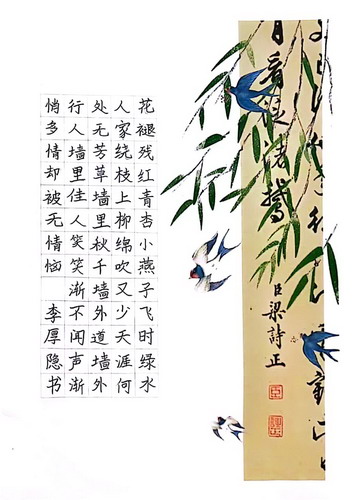 花褪残红青杏小燕子飞时绿水
人家绕枝上柳绵吹又少天涯何
处无芳草墙里秋千墙外道墙外
行人墙里佳人笑笑渐不闻声渐
悄多情却被无情恼 李厚隐书
臣梁詩正